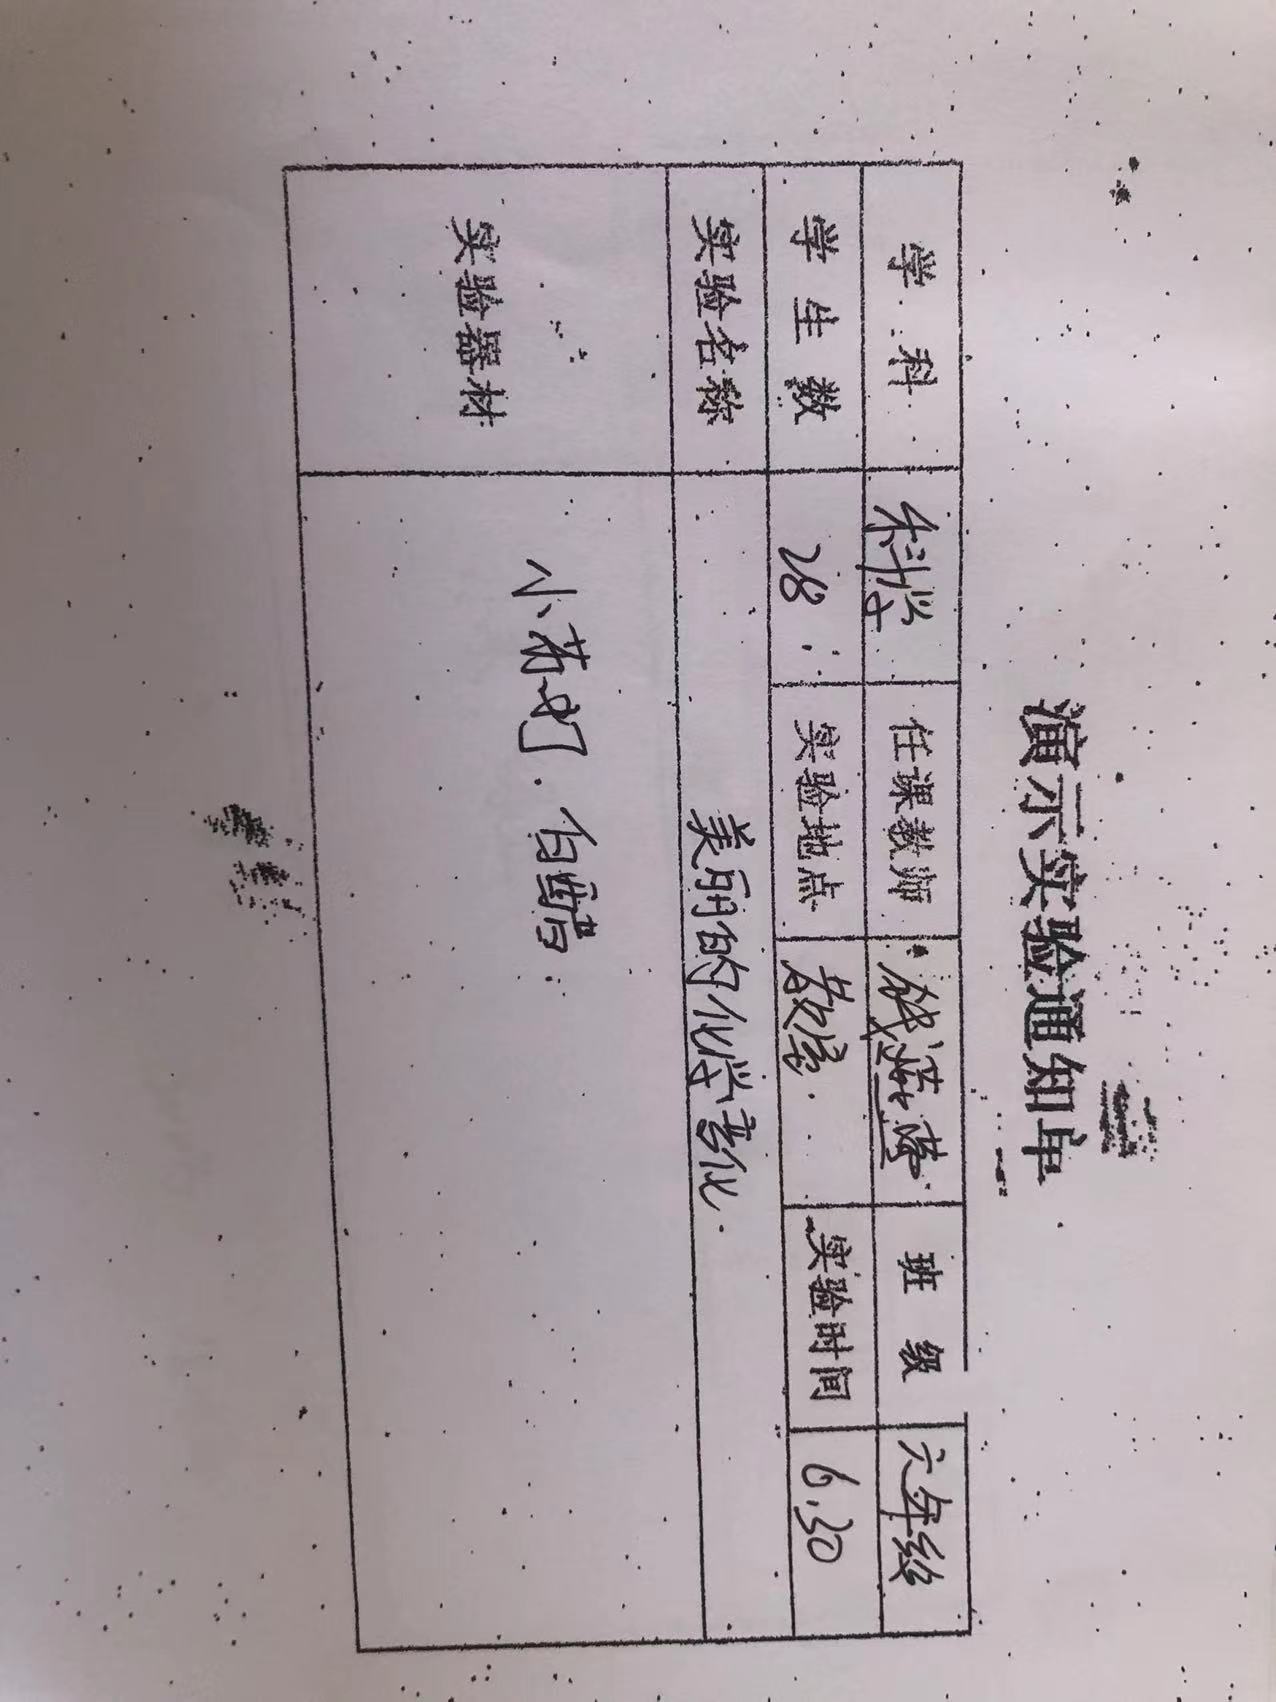 演示实验通知单
学 科 科学 任课教师 班 级 六年级
学 生 数 28 实验地点 教室. 实验时间 6.30
实验名称 美丽的化学变化.
实验器材 小苏打.白醋.